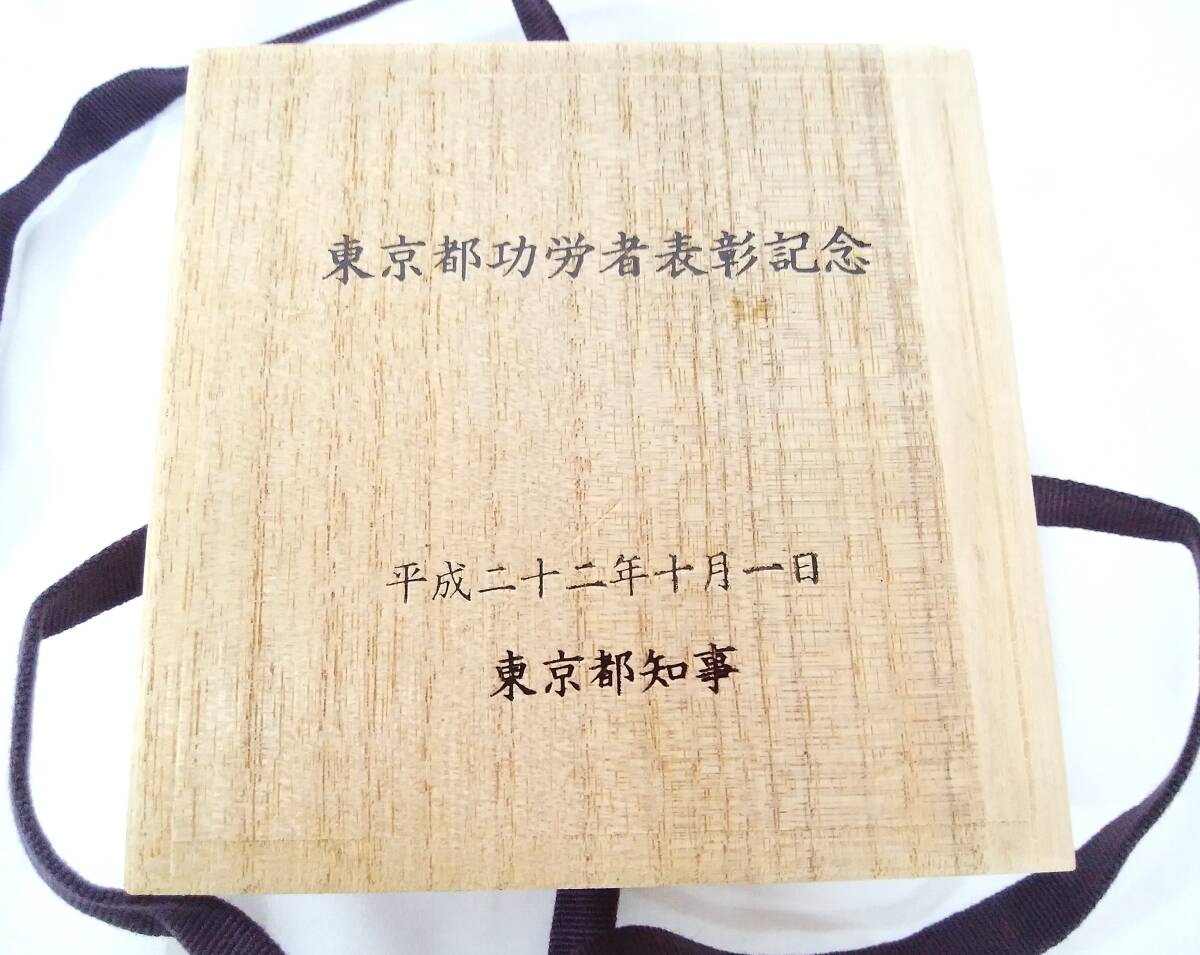 東京都功労者表彰記念
平成二十二年十月一日
東京都知事